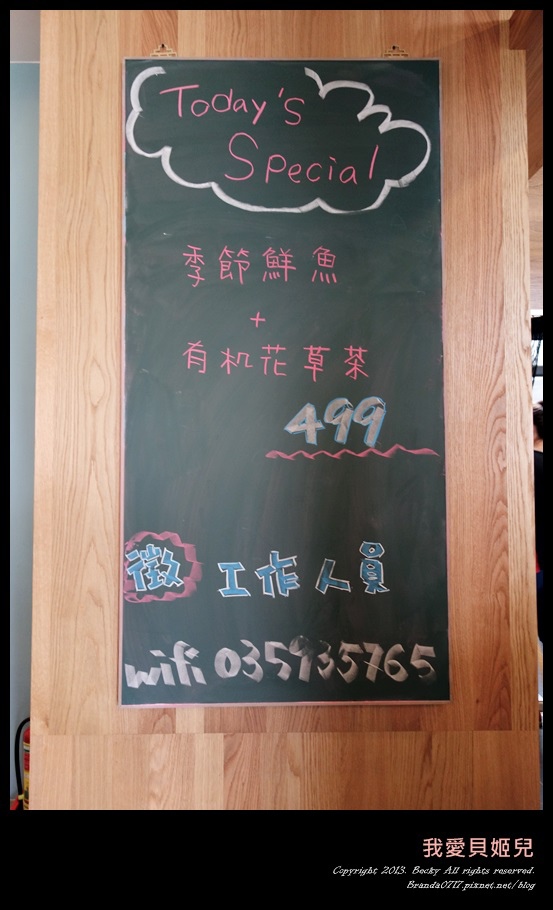 Today's
Special
季節鮮魚
+
有机花草茶
499
徵工作人員
wifi 035935765
我愛貝姬兒
Copyright 2013. Becky All rights reserved.
Branda0717.pixnet.net/blog